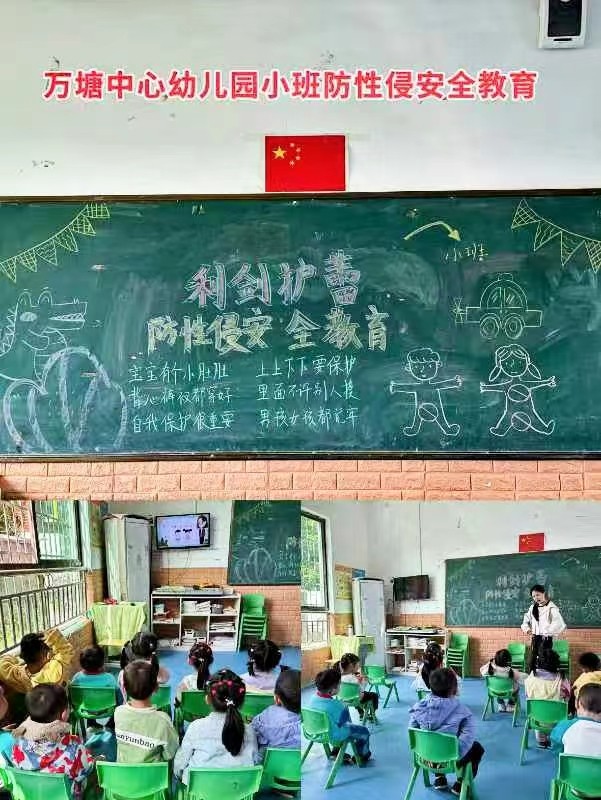 万塘中心幼儿园小班防性侵安全教育
小班
利剑护蕾
防性侵安全教育
宝宝有个小肚肚 上上下下要保护
背心裤衩都穿好 里面不许别人摸
自我保护很重要 男孩女孩都记牢
防性侵安